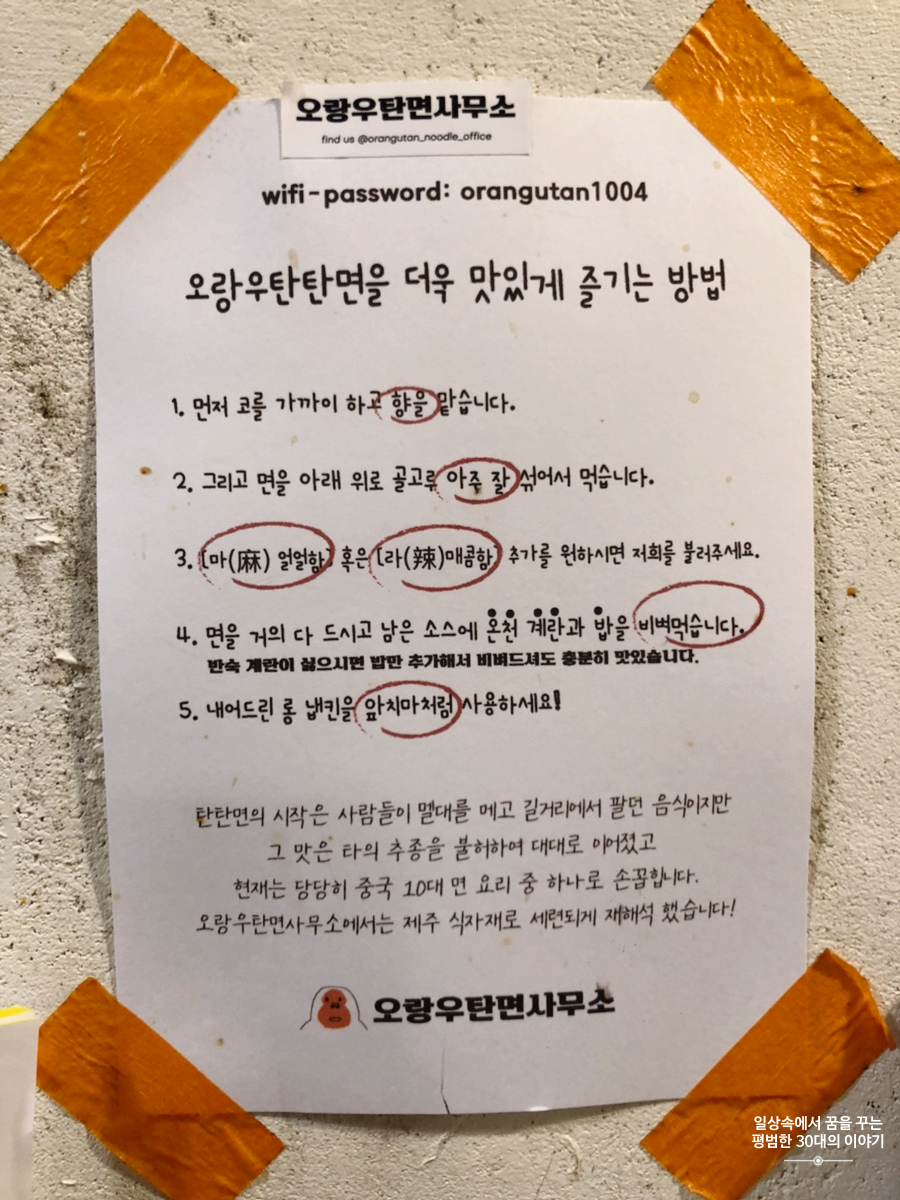 오랑우탄면사무소
find us @orangutan_noodle_office
wifi-password: orangutan1004
오랑우탄탄면을 더욱 맛있게 즐기는 방법
1. 먼저 코를 가까이 하고 향을 맡습니다.
2. 그리고 면을 아래 위로 골고루 아주 잘 섞어서 먹습니다.
3. [마(麻) 얼얼함] 혹은 [라(辣)매콤함] 추가를 원하시면 저희를 불러주세요.
4. 면을 거의 다 드시고 남은 소스에 온천 계란과 밥을 비벼먹습니다.
반숙 계란이 싫으시면 밥만 추가해서 비벼드셔도 충분히 맛있습니다.
5. 내어드린 롱 냅킨을 앞치마처럼 사용하세요!
탄탄면의 시작은 사람들이 멜대를 메고 길거리에서 팔던 음식이지만
그 맛은 타의 추종을 불허하여 대대로 이어졌고
현재는 당당히 중국 10대 면 요리 중 하나로 손꼽힙니다.
오랑우탄면사무소에서는 제주 식자재로 세련되게 재해석 했습니다!
오랑우탄면사무소
일상속에서 꿈을 꾸는
평범한 30대의 이야기